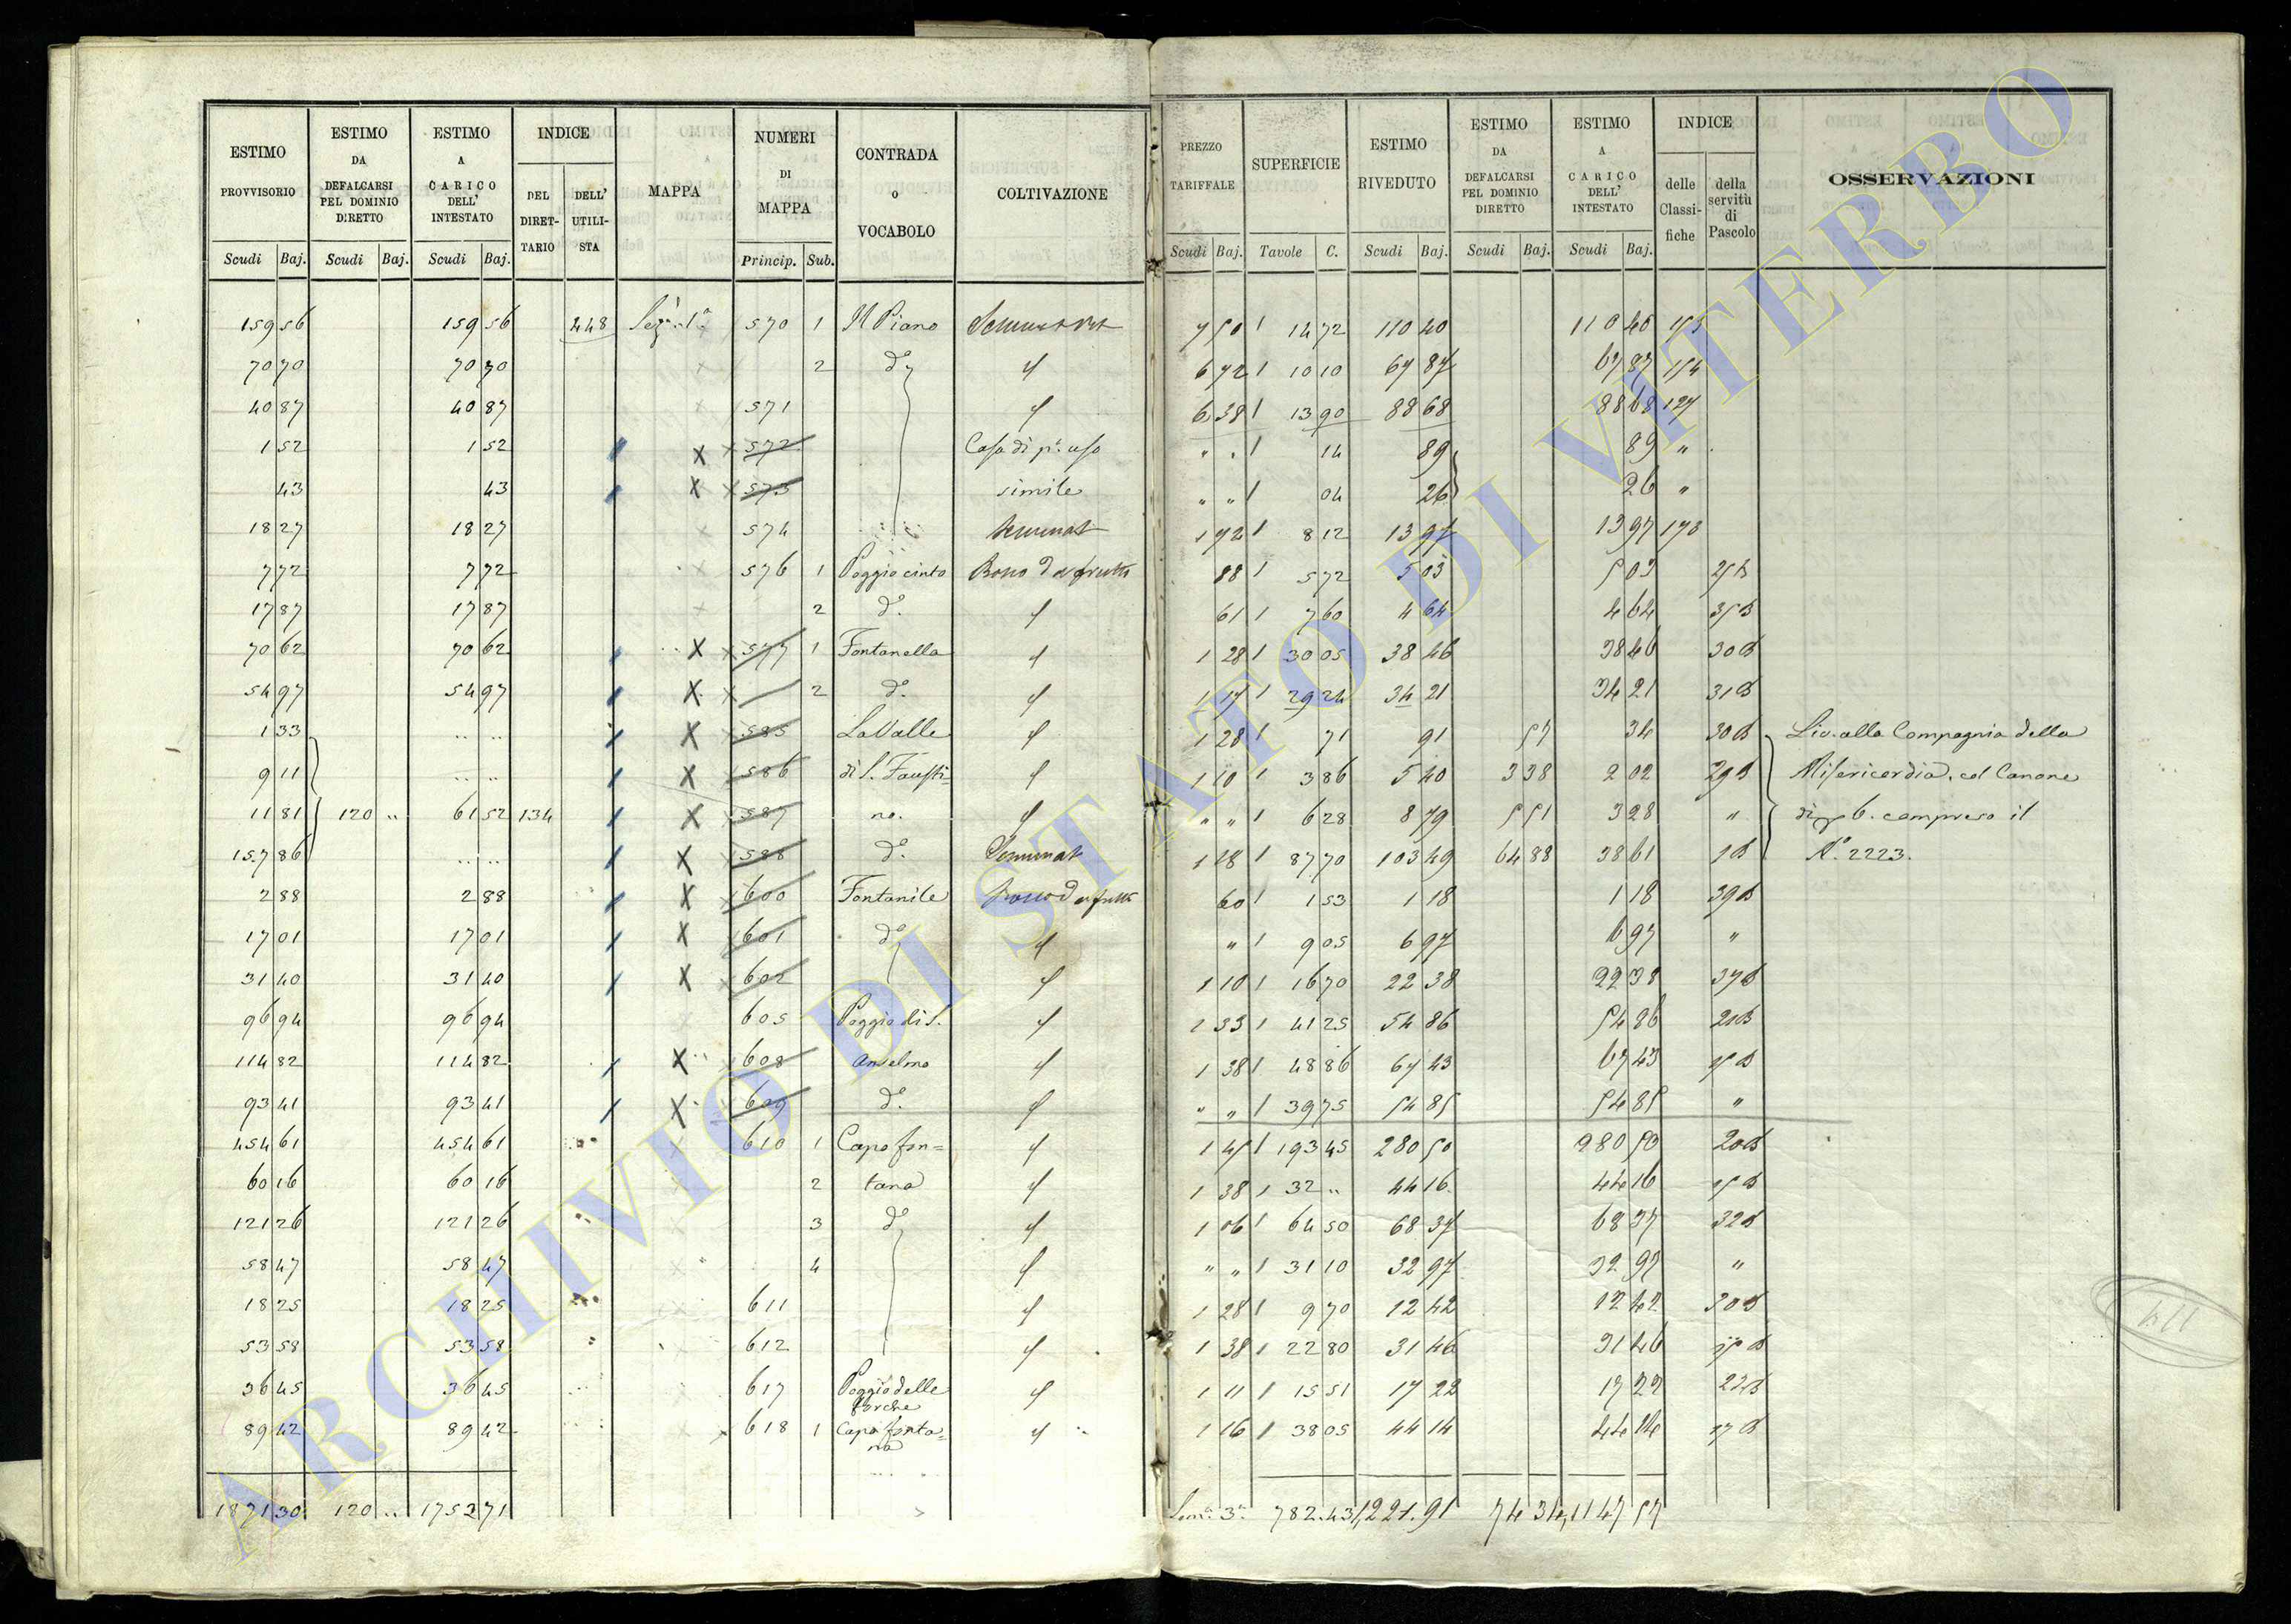 ESTIMO PROVVISORIO | ESTIMO DA DEFALCARSI PEL DOMINIO DIRETTO | ESTIMO A CARICO DELL' INTESTATO | INDICE | MAPPA | NUMERI DI MAPPA | CONTRADA O VOCABOLO | COLTIVAZIONE | PREZZO TARIFFALE | SUPERFICIE | ESTIMO RIVEDUTO | ESTIMO DA DEFALCARSI PEL DOMINIO DIRETTO | ESTIMO A CARICO DELL' INTESTATO | INDICE | OSSERVAZIONI
DEL DIRETTARIO | DELL' UTILISTA | delle Classifiche | della servitù di Pascolo
Scudi Baj. | Scudi Baj. | Scudi Baj. | Princip. Sub. | Scudi Baj. | Tavole C. | Scudi Baj. | Scudi Baj. | Scudi Baj.
159 56 | 159 56 | 448 | Sez. 1ª | 570 | 1 | Il Piano | 7 50 | 14 72 | 110 40 | 110 40
70 70 | 70 70 | 2 | dº | 6 72 | 10 10 | 67 87 | 67 87 | 154
40 87 | 40 87 | 571 | 6 38 | 13 90 | 88 68 | 88 68 | 127
1 52 | 1 52 | X | 572 | Casa di pª uso | " " | 14 | 89 | 89 | "
43 | 43 | X | 573 | simile | " " | 04 | 26 | 26 | "
18 27 | 18 27 | 574 | Seminat | 1 72 | 8 12 | 13 97 | 13 97 | 173
7 72 | 7 72 | 576 | 1 | Poggio cinto | Bosco d a frutto | 88 | 5 72 | 5 03 | 5 03
17 87 | 17 87 | 2 | dº | 61 | 7 60 | 4 64 | 4 64
70 62 | 70 62 | X | 577 | 1 | Fontanella | 1 28 | 30 05 | 38 46 | 38 46 | 30 B
54 97 | 54 97 | X | 2 | dº | 1 17 | 29 24 | 34 21 | 34 21 | 31 B
1 33 | X | 585 | La Valle | 1 28 | 71 | 91 | 57 | 34 | 30 B | Liv. alla Compagnia della
9 11 | X | 586 | di S. Fausti- | 3 86 | 5 40 | 3 38 | 2 02 | 29 B | Misericordia, col Canone
11 81 | 120 " | 61 52 | 134 | X | 587 | no. | " " | 6 28 | 8 79 | 5 51 | 3 28 | " | 6. compreso il
157 86 | X | 588 | dº | Seminat | 1 18 | 87 70 | 103 49 | 64 88 | 38 61 | Nº 2223.
2 88 | 2 88 | X | 600 | Fontanile | Bosco d a frutto | 60 | 1 53 | 1 18 | 1 18 | 39 B
17 01 | 17 01 | X | 601 | dº | " | 9 05 | 6 97 | 6 97 | "
31 40 | 31 40 | X | 602 | 1 10 | 16 70 | 22 38 | 22 38 | 37 B
96 94 | 96 94 | 605 | Poggio di S. | 1 33 | 41 25 | 54 86 | 54 86
114 82 | 114 82 | X | 608 | Anselmo | 1 38 | 48 86 | 67 43 | 67 43
93 41 | 93 41 | X | 609 | dº | " " | 39 75 | 54 85 | 54 85 | "
454 61 | 454 61 | 610 | 1 | Capo fon= | 1 45 | 193 45 | 280 50 | 280 50 | 20 B
60 16 | 60 16 | 2 | tana | 1 38 | 32 " | 44 16 | 44 16
121 26 | 121 26 | 3 | dº | 1 06 | 64 50 | 68 37 | 68 37 | 32 B
58 47 | 58 47 | 4 | " " | 31 10 | 32 97 | 32 97 | "
18 25 | 18 25 | 611 | 1 28 | 9 70 | 12 42 | 12 42 | 30 B
53 58 | 53 58 | 612 | 1 38 | 22 80 | 31 46 | 31 46
36 45 | 36 45 | 617 | Poggio delle forche | 1 11 | 15 51 | 17 22 | 17 22 | 22 B
89 42 | 89 42 | 618 | 1 | Capo fonta=na | 1 16 | 38 05 | 44 14 | 44 14
1871 30 | 120 " | 1752 71 | 782.43 | 1,221.91 | 74 34 | 1147 57
114
ARCHIVIO DI STATO DI VITERBO